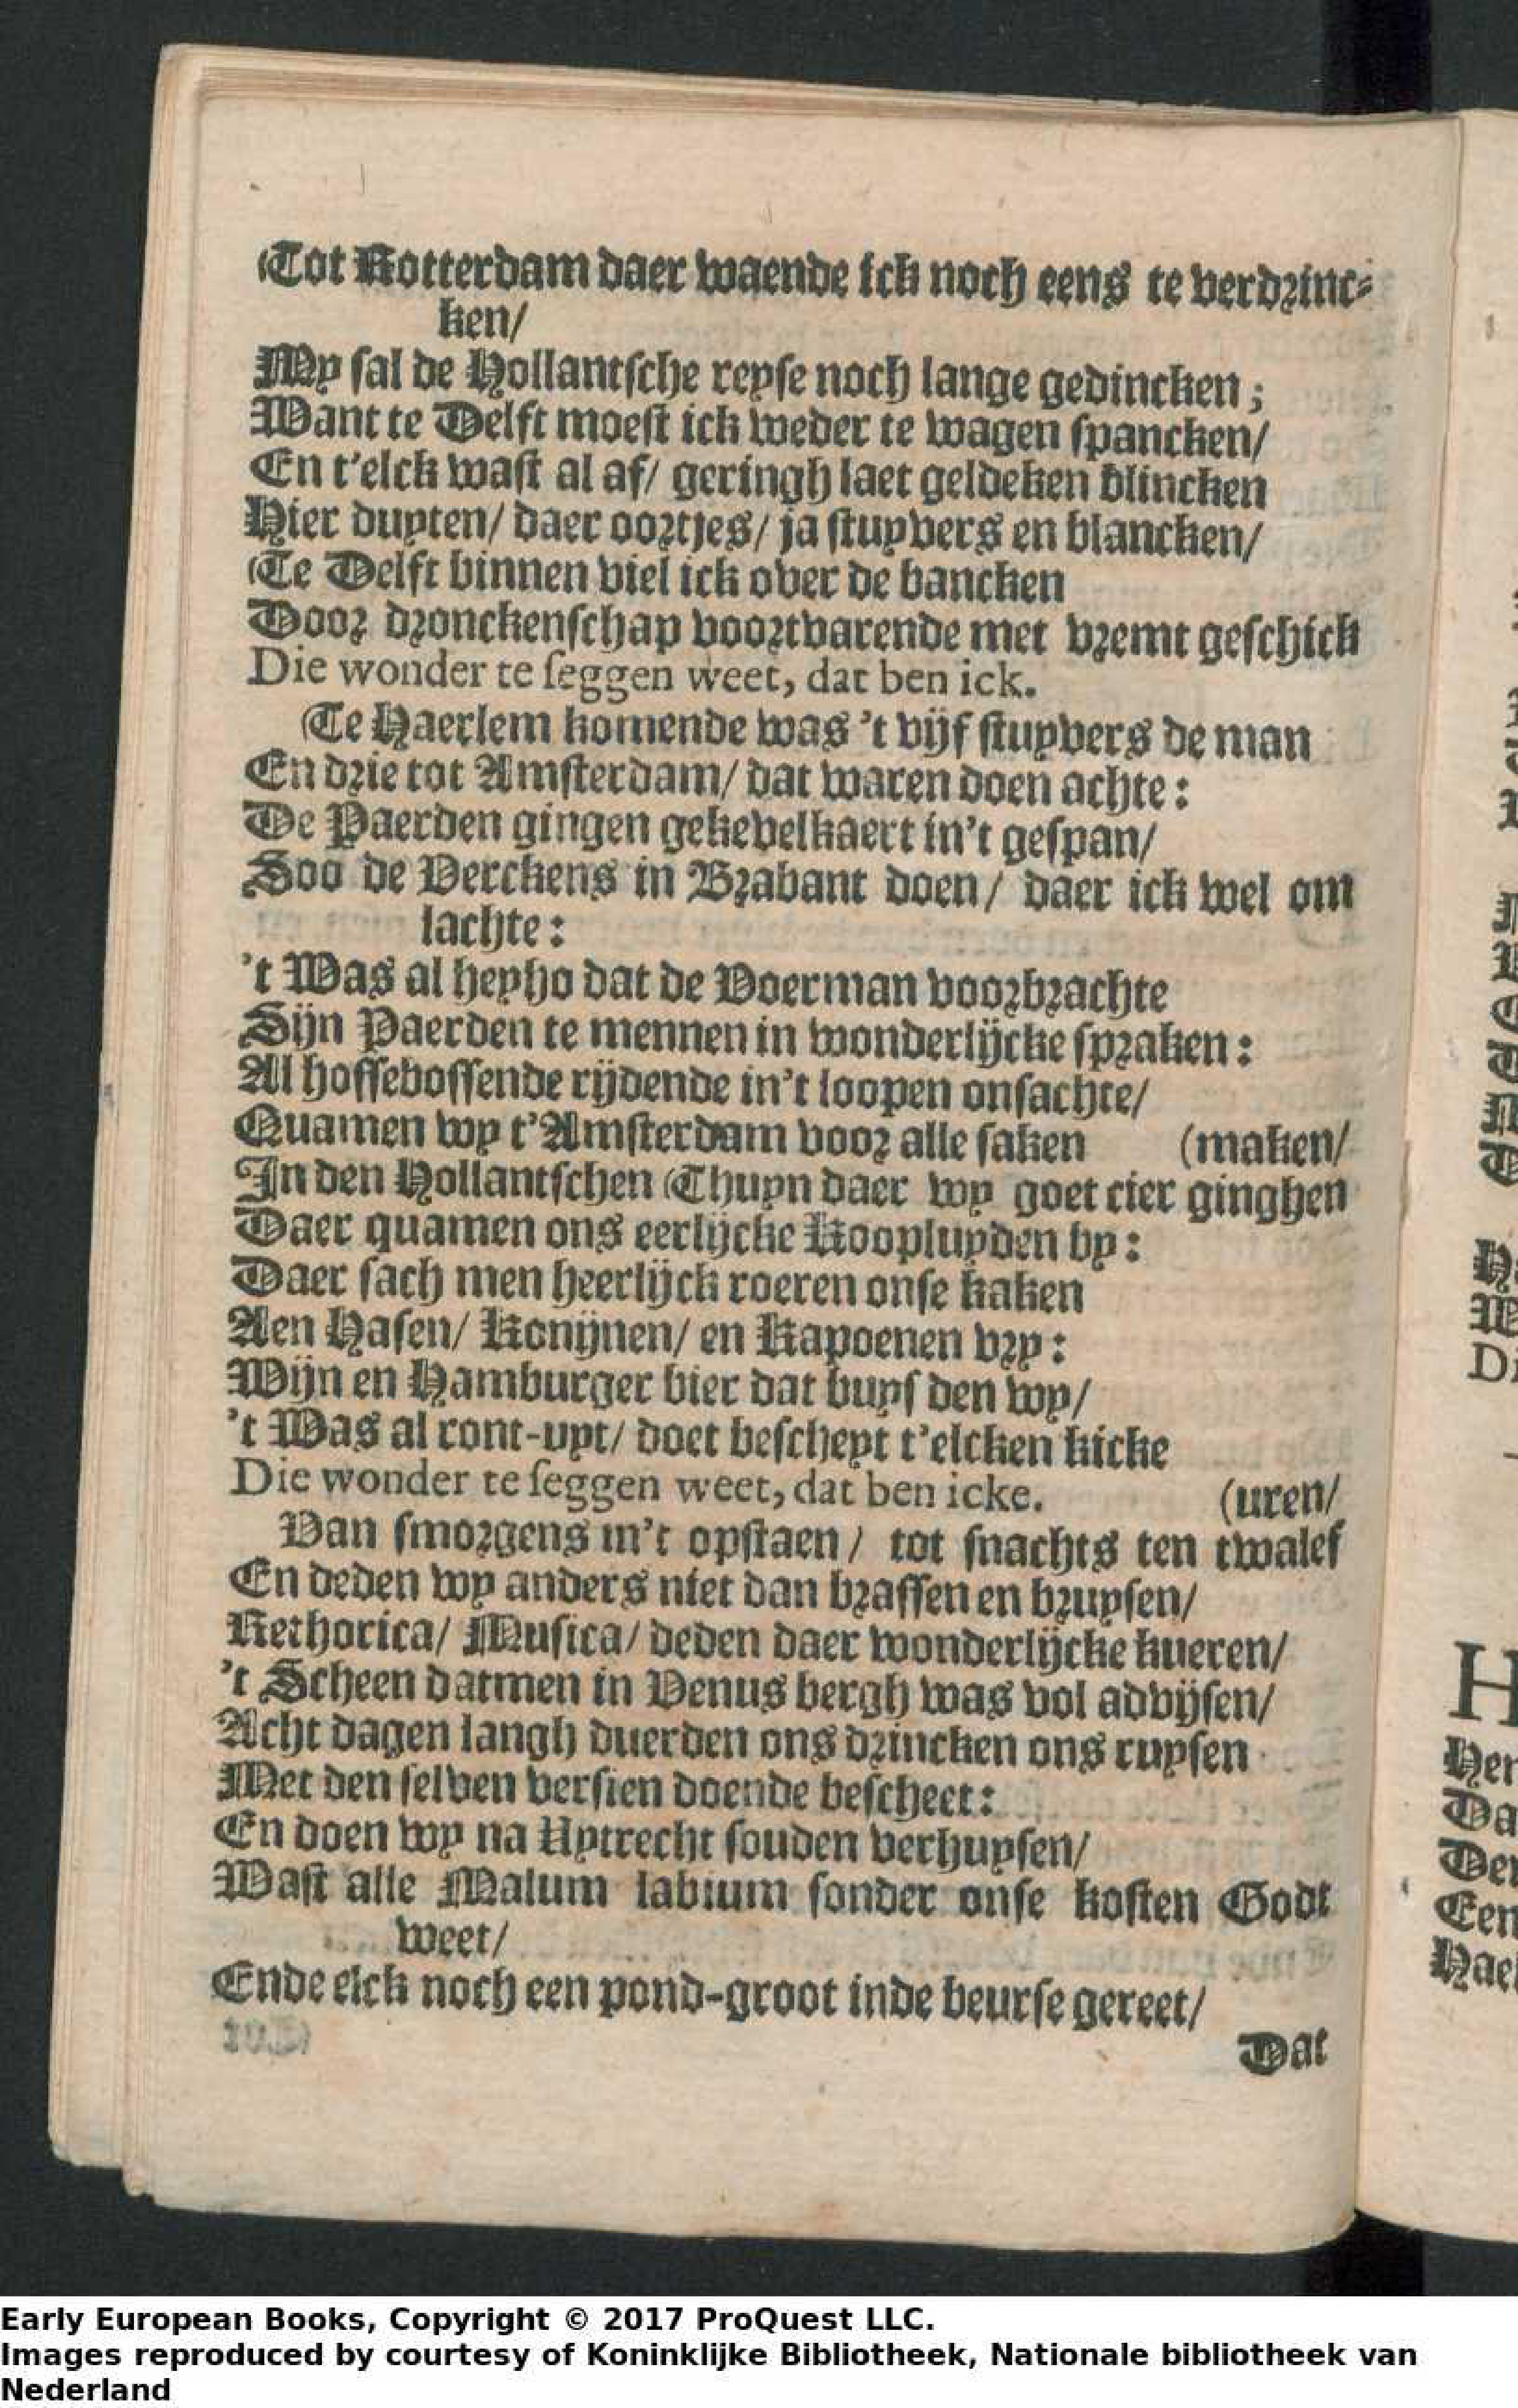 Tot Rotterdam daer waende ick noch eens te verdrinc-
ken/
My sal de Hollantsche reyse noch lange gedincken;
Want te Delft moest ick weder te wagen spancken/
En t'elck wast al af/ geringh laet geldeken blincken
Hier duyten/ daer oortjes/ ja stuyvers en blancken/
Te Delft binnen viel ick over de bancken
Door dronckenschap voortvarende met vremt geschick
Die wonder te seggen weet, dat ben ick.
Te Haerlem komende was 't vijf stuyvers de man
En drie tot Amsterdam/ dat waren doen achte:
De Paerden gingen gekevelkaert in't gespan/
Soo de Verckens in Brabant doen/ daer ick wel om
lachte:
't Was al heyho dat de Voerman voorbrachte
Sijn Paerden te mennen in wonderlijcke spraken:
Al hossebossende rijdende in't loopen onsachte/
Quamen wy t'Amsterdam voor alle saken (maken/
In den Hollantschen Thuyn daer wy goet cier ginghen
Daer quamen ons eerlijcke Koopluyden by:
Daer sach men heerlijck roeren onse kaken
Aen Hasen/ Konijnen/ en Kapoenen vry:
Wijn en Hamburger bier dat buys den wy/
't Was al ront-uyt/ doet bescheyt t'elcken kicke
Die wonder te seggen weet, dat ben icke. (uren/
Van smorgens in't opstaen/ tot snachts ten twalef
En deden wy anders niet dan brassen en bruysen/
Rethorica/ Musica/ deden daer wonderlijcke kueren/
't Scheen datmen in Venus bergh was vol advijsen/
Acht dagen langh duerden ons drincken ons ruysen
Met den selven versien doende bescheet:
En doen wy na Uytrecht souden verhuysen/
Wast alle Malum labium sonder onse kosten Godt
weet/
Ende elck noch een pond-groot inde beurse gereet/
Dat
Early European Books, Copyright © 2017 ProQuest LLC.
Images reproduced by courtesy of Koninklijke Bibliotheek, Nationale bibliotheek van
Nederland